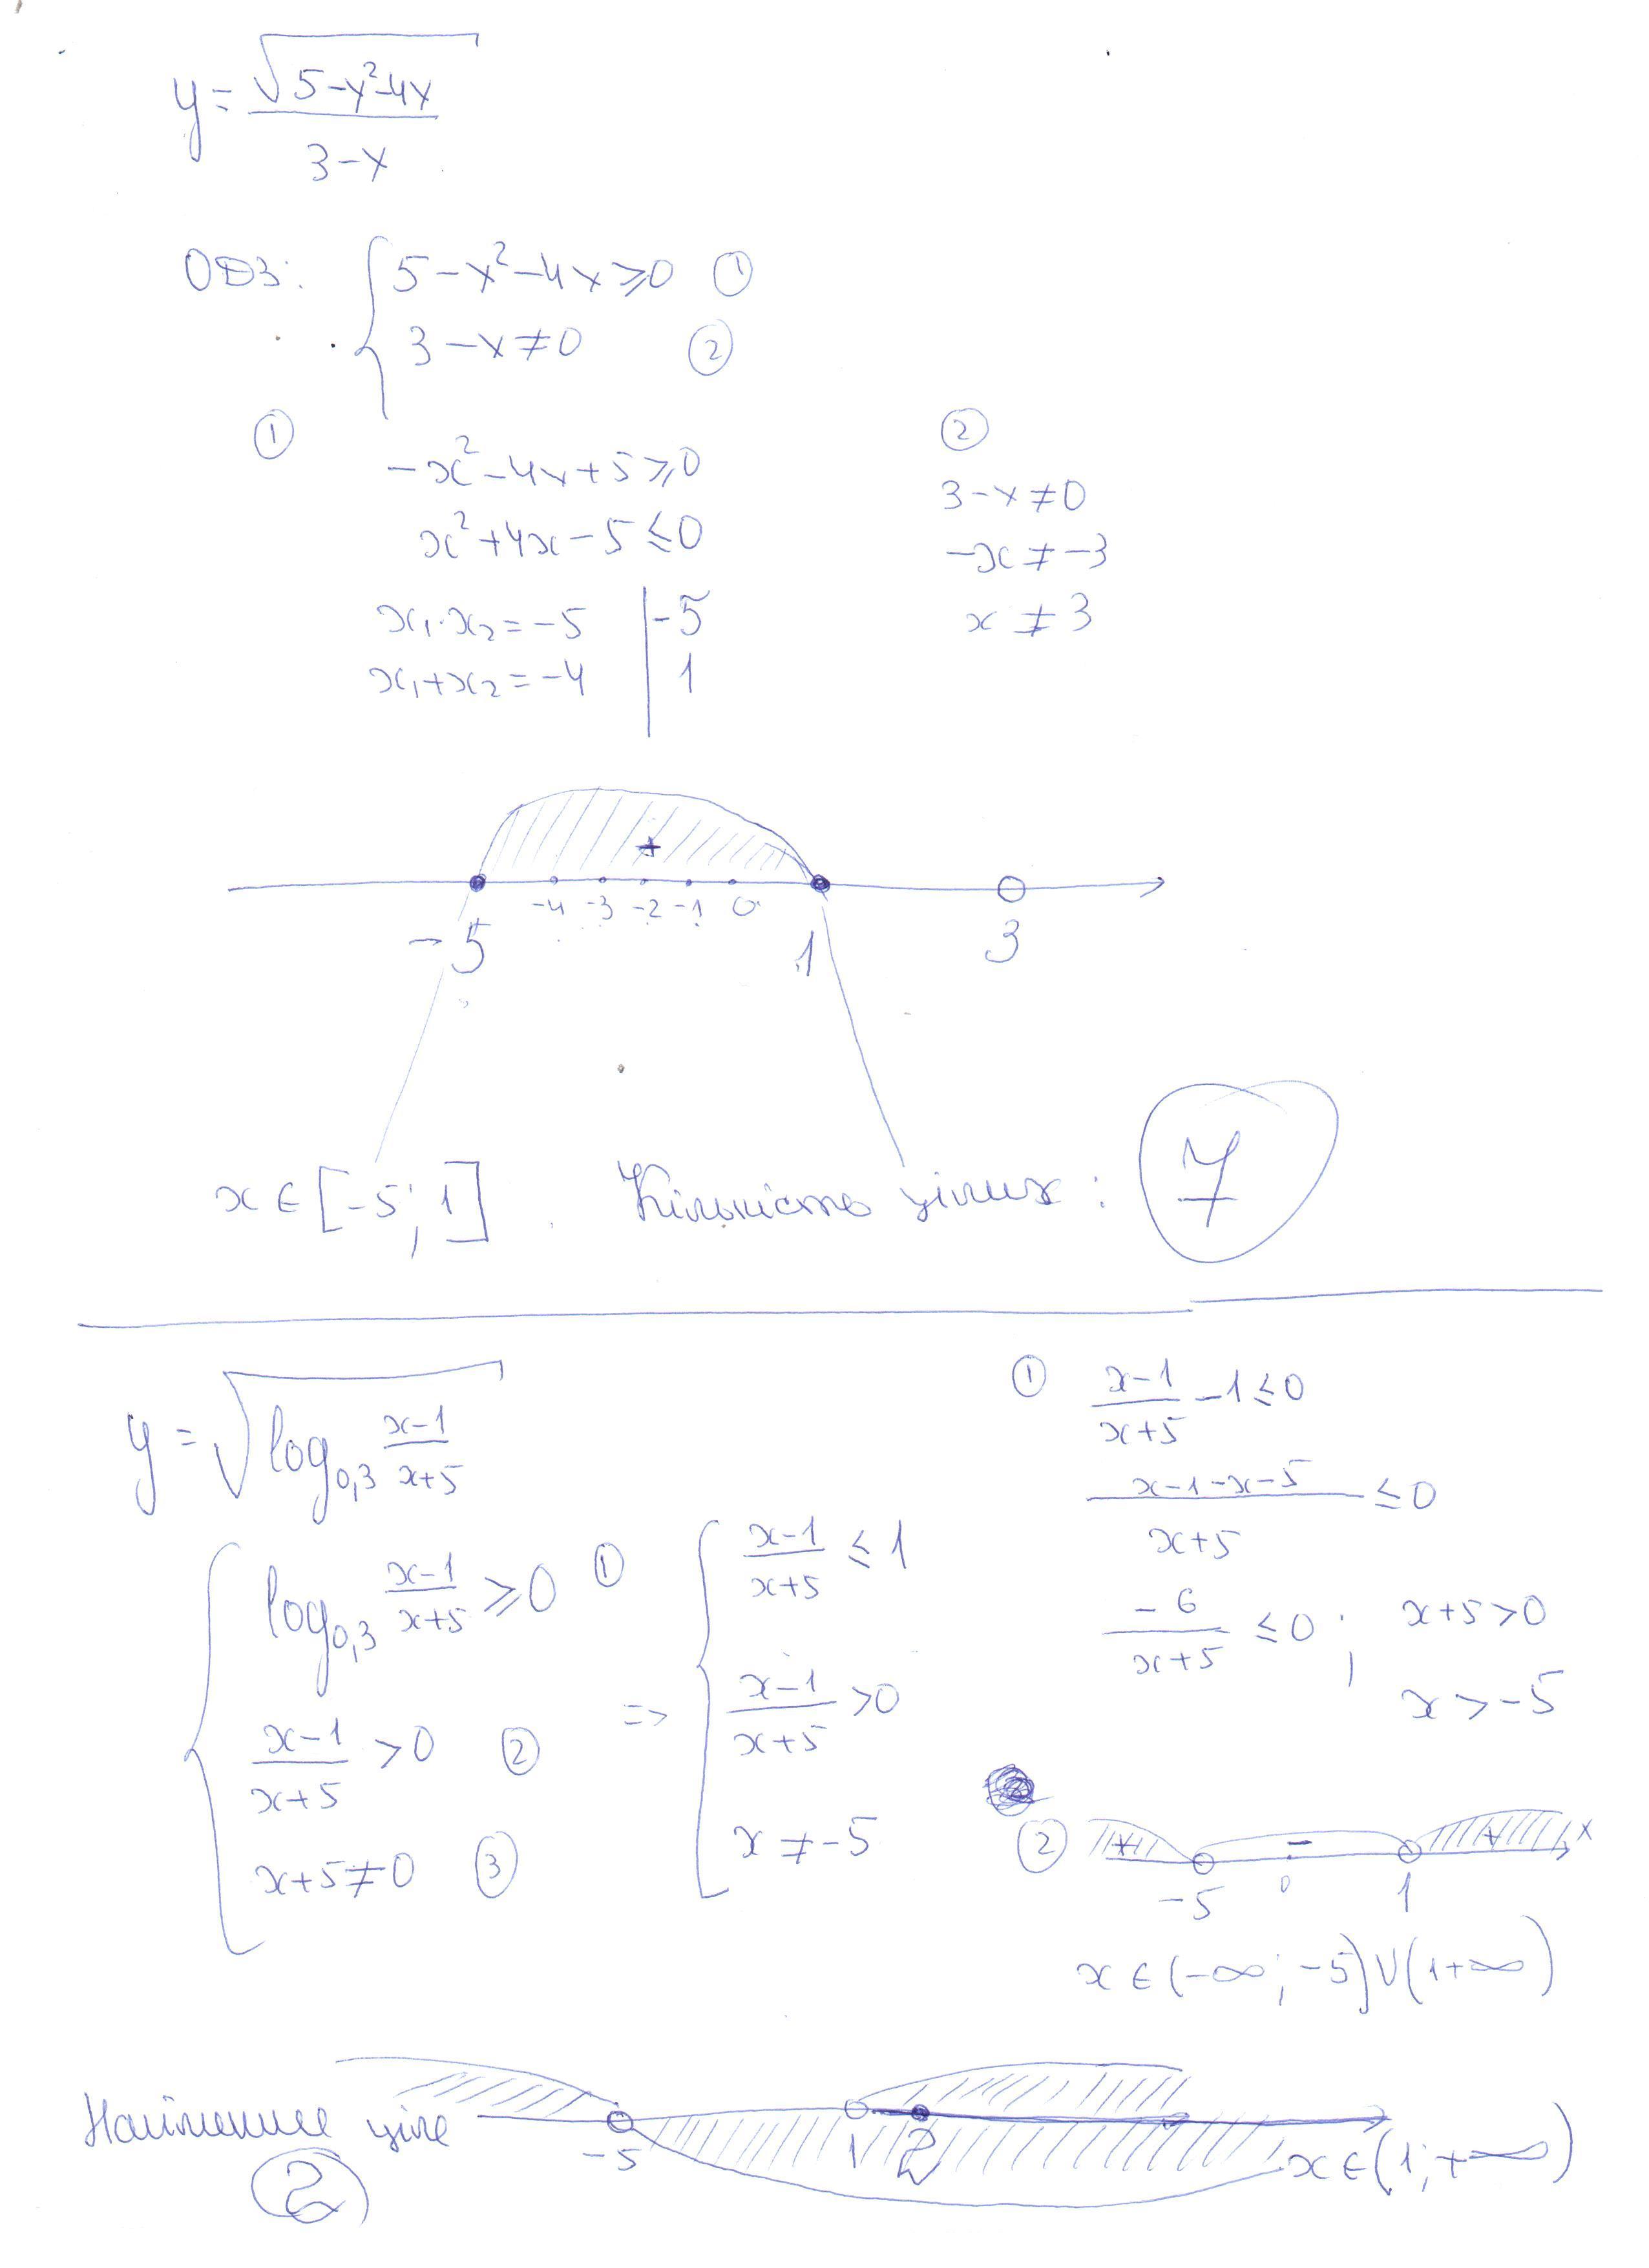 y = √(5-x²-4x) / (3-x)
ОДЗ: { 5-x²-4x ≥ 0 ①
3-x ≠ 0 ②
①
-x²-4x+5 ≥ 0
x²+4x-5 ≤ 0
x₁·x₂ = -5 | -5
x₁+x₂ = -4 | 1
②
3-x ≠ 0
-x ≠ -3
x ≠ 3
+
-4 -3 -2 -1 0
-5 1 3
x ∈ [-5; 1] Кількість цілих: 7
y = √(log₀,₃ (x-1)/(x+5))
{ log₀,₃ (x-1)/(x+5) ≥ 0 ①
(x-1)/(x+5) > 0 ②
x+5 ≠ 0 ③
=> { (x-1)/(x+5) ≤ 1
(x-1)/(x+5) > 0
x ≠ -5
① (x-1)/(x+5) - 1 ≤ 0
(x-1-x-5)/(x+5) ≤ 0
-6/(x+5) ≤ 0; x+5 > 0
x > -5
② + - + x
-5 0 1
x ∈ (-∞; -5) ∪ (1 +∞)
Найменше ціле
2
-5 1 2
x ∈ (1; +∞)